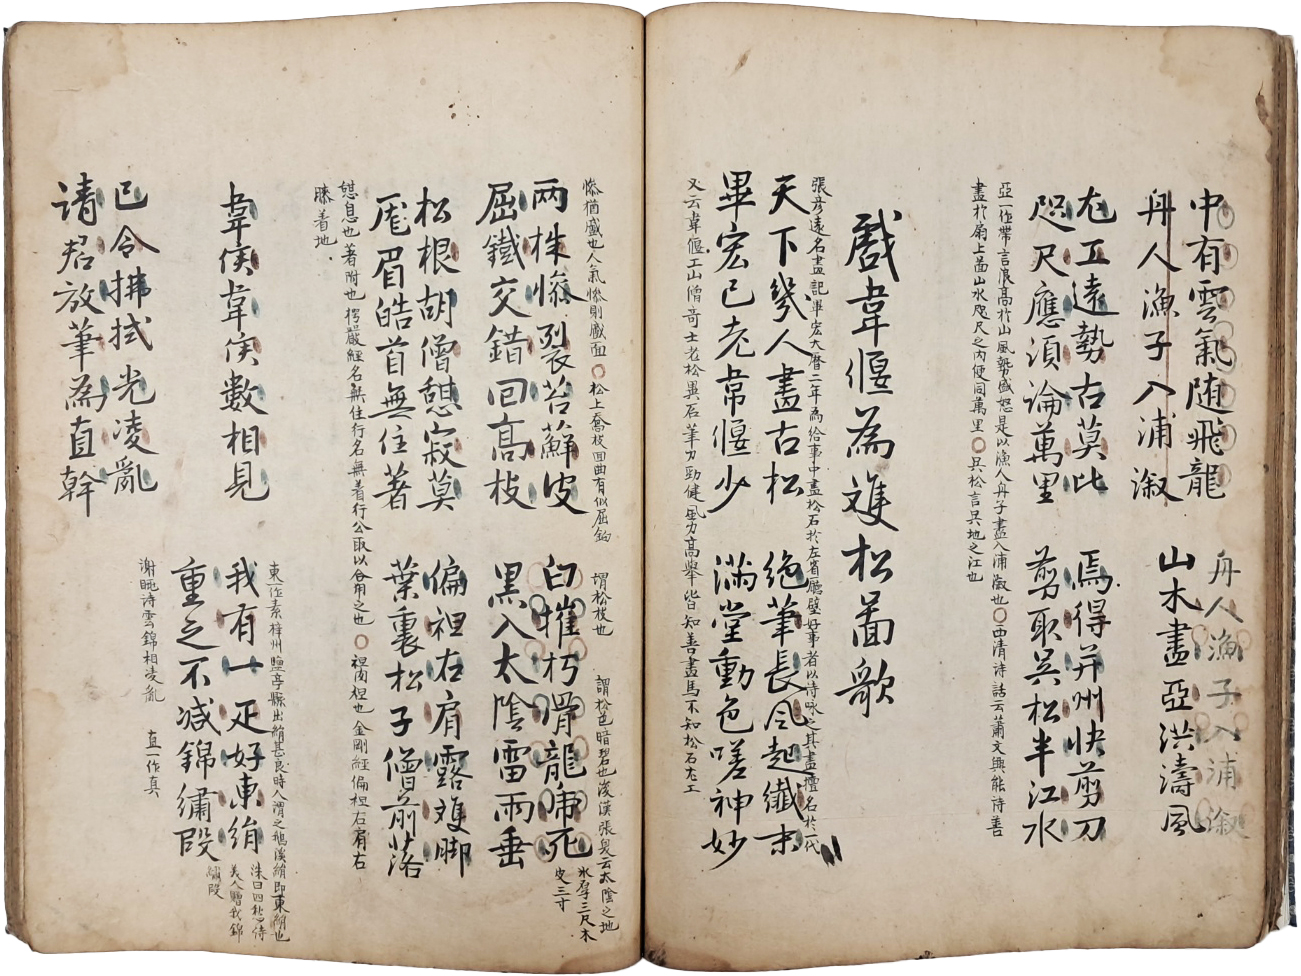 中有雲氣随飛龍
舟人漁子入浦溆
舟人漁子入浦溆
山木盡亞洪濤風
尤工遠勢古莫比
咫尺應湏論萬里
焉得并州快剪刀
剪取吳松半江水
亞一作帶言浪高於山風勢盛怒是以漁人舟子盡入浦溆也○西清诗話云蕭文興能诗善
畫於扇上啚山水咫尺之内便同萬里○吳松言吳地之江也
戲韋偃為䨇松啚歌
張彦遠名畫記畢宏大曆二年爲给事中畫松石於左省廳壁好事者以诗咏之其畫擅名於一代
天下幾人畫古松
畢宏已老韋偃少
絶筆長風起纖末
滿堂動色嗟神妙
又云韋偃工山僧奇士老松異石筆力勁健風力高舉皆知善畫馬不知松石尤工
惨猶盛也人氣惨則戚面○松上喬枝回曲有似屈鈎
謂松枝也
謂松色暗碧也後漢張奐云太陰之地
氷厚三尺木
皮三寸
两株惨裂苔蘚皮
屈鐵交錯回高枝
白摧朽骨龍虎死
黑入太隂雷雨垂
松根胡僧憇寂莫
厖眉皓首無住著
偏袒右肩露䨇脚
葉裏松子僧前落
憇息也著附也楞嚴經名無住行名無着行公取以合用之也○袒肉袒也金剛經偏袒右肩右
膝着地
韋侯韋侯數相見
我有一疋好東絹
東一作素梓州鹽亭縣出絹甚良時人谓之鵝溪絹即東絹也
洙曰四愁诗
美人贈我錦
繡段
已令拂拭光凌亂
请君放筆為直幹
重之不减錦繡段
谢眺诗雲錦相凌亂
直一作真